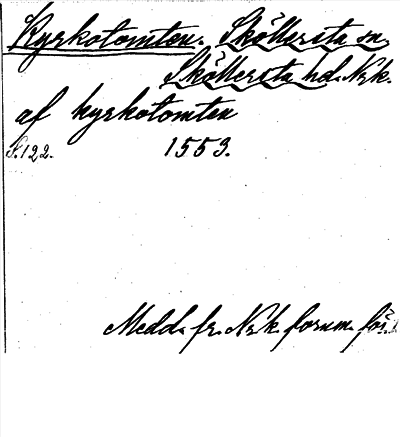 Kyrkotomten. Sköllersta sn.
Sköllersta hd. Nrk.
af kyrkotomten
S. 122. 1553.
Medd. fr. Nrk. fornm. för.